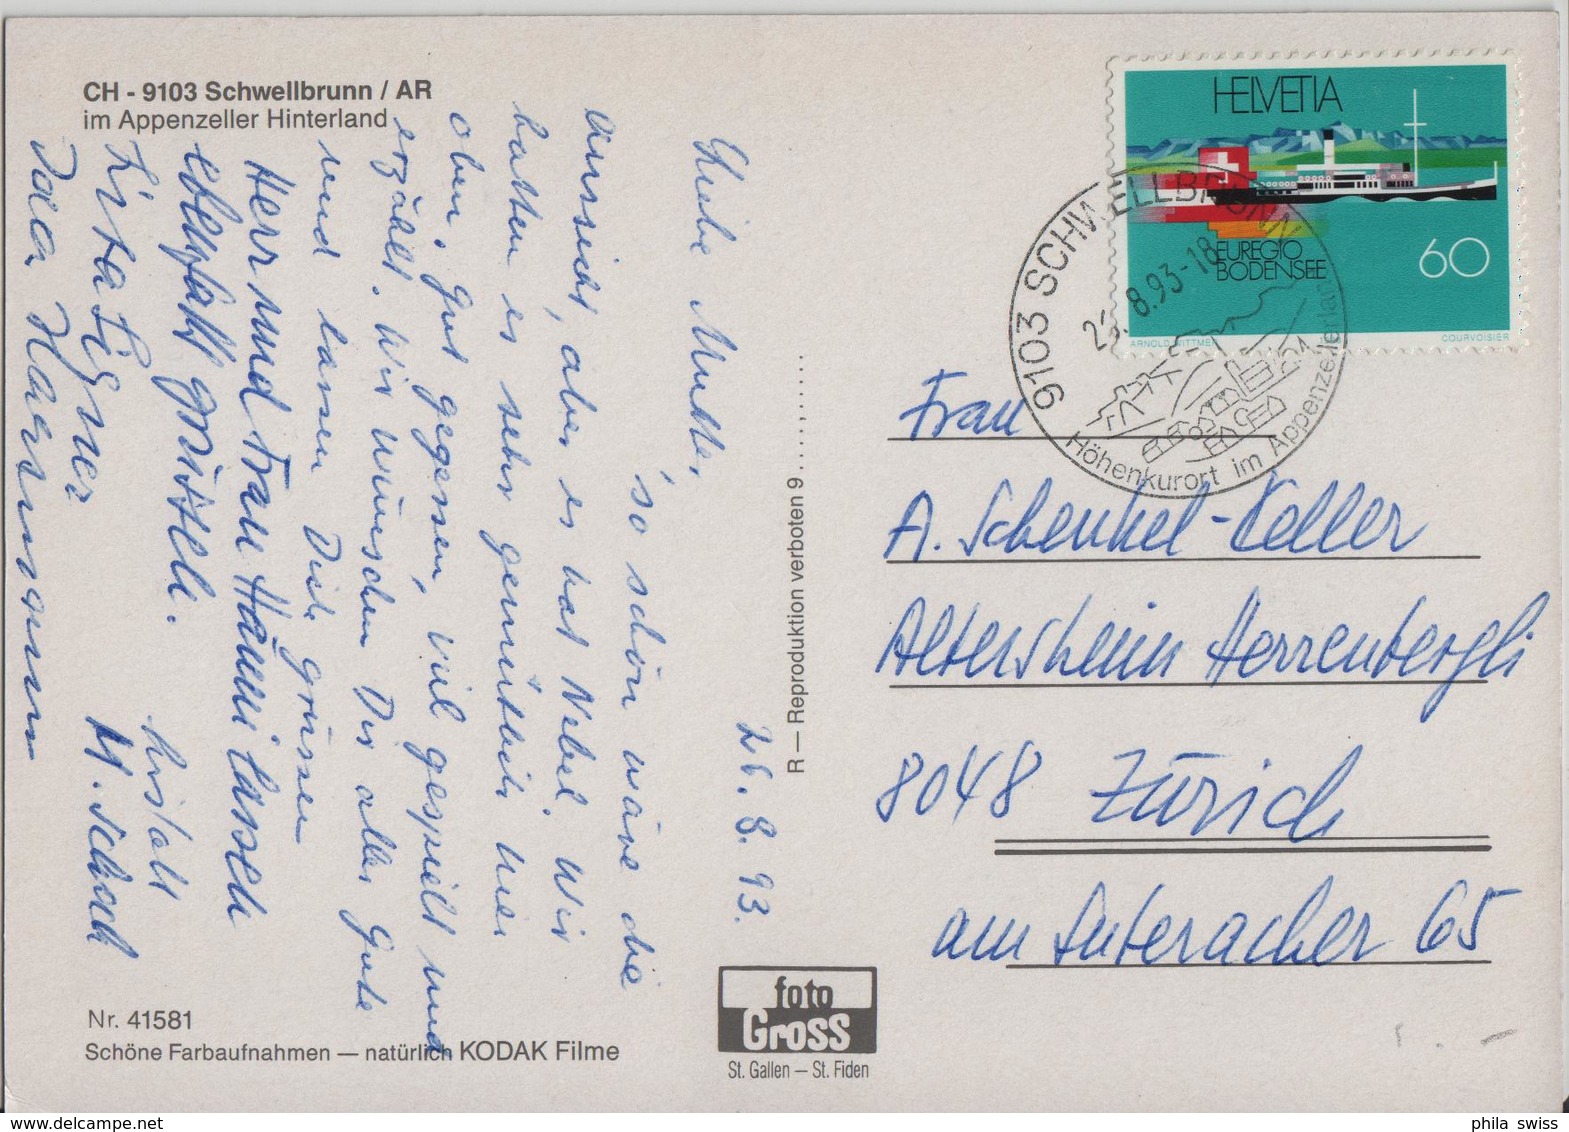 CH - 9103 Schwellbrunn / AR
im Appenzeller Hinterland
26. 8. 93.
Liebe Mutter,
so schön wäre die
Aussicht, aber es hat Nebel. Wir
hatten es sehr gemütlich hier
oben. Gut gegessen, viel gespielt und
erzählt. Wir wünschen Dir alles Gute
und lassen Dich grüssen
Herr und Frau Hänni lassen
ebenfalls grüssen.
H. Schoch
Ida
Nr. 41581
Schöne Farbaufnahmen — natürlich KODAK Filme
R — Reproduktion verboten 9......,......
foto
Gross
St. Gallen — St. Fiden
HELVETIA
EUREGIO
BODENSEE
60
ARNOLD WITTMER
COURVOISIER
9103 SCHWELLBRUNN
.8.93-18
Höhenkurort im Appenzellerland
Frau
A. Schenkel-Keller
Altersheim Herrenbergli
8048 Zürich
am Suteracher 65
phila swiss
www.delcampe.net